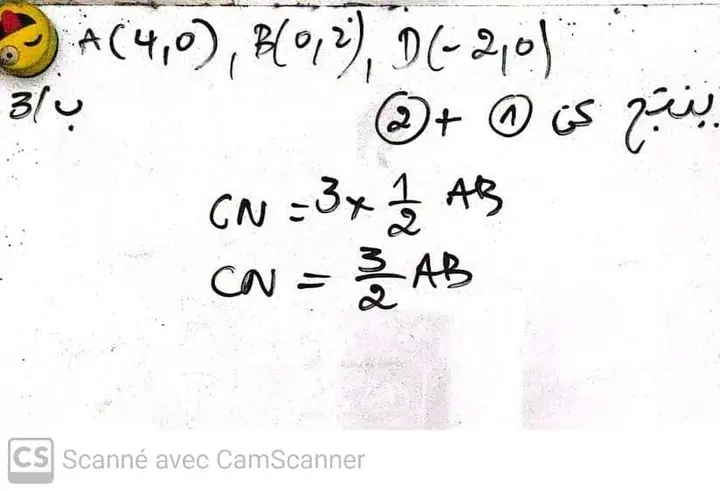 A(4,0), B(0,2), D(-2,0)
3/ب
ينتج من ① + ②
CN = 3 × 1/2 AB
CN = 3/2 AB
CS Scanné avec CamScanner